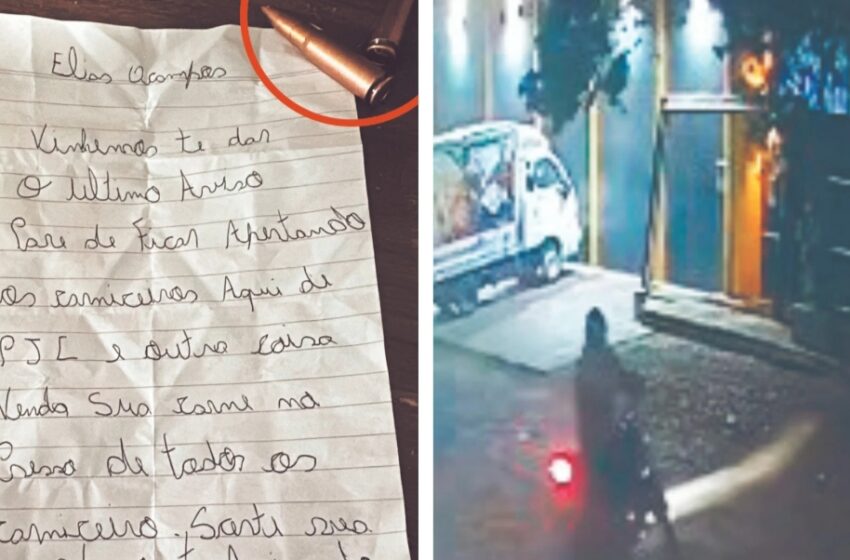 Elias Ocampos
Vinhemos te dar
O Ultimo Aviso
Pare de Ficar Apertando
os carniceiros Aqui de
PJC e outra coisa
Venda Sua carne no
Presso de todos os
carniceiro. Santi sua